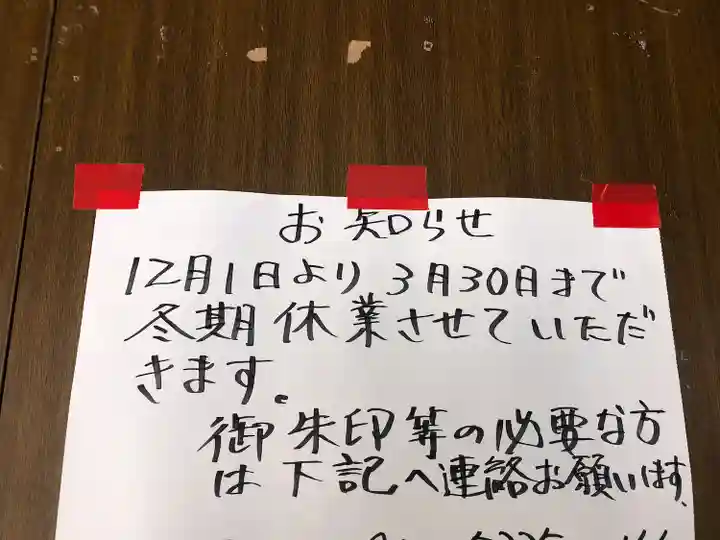 お知らせ
12月1日より3月30日まで
冬期休業させていただ
きます。
御朱印等の必要な方
は下記へ連絡お願いします